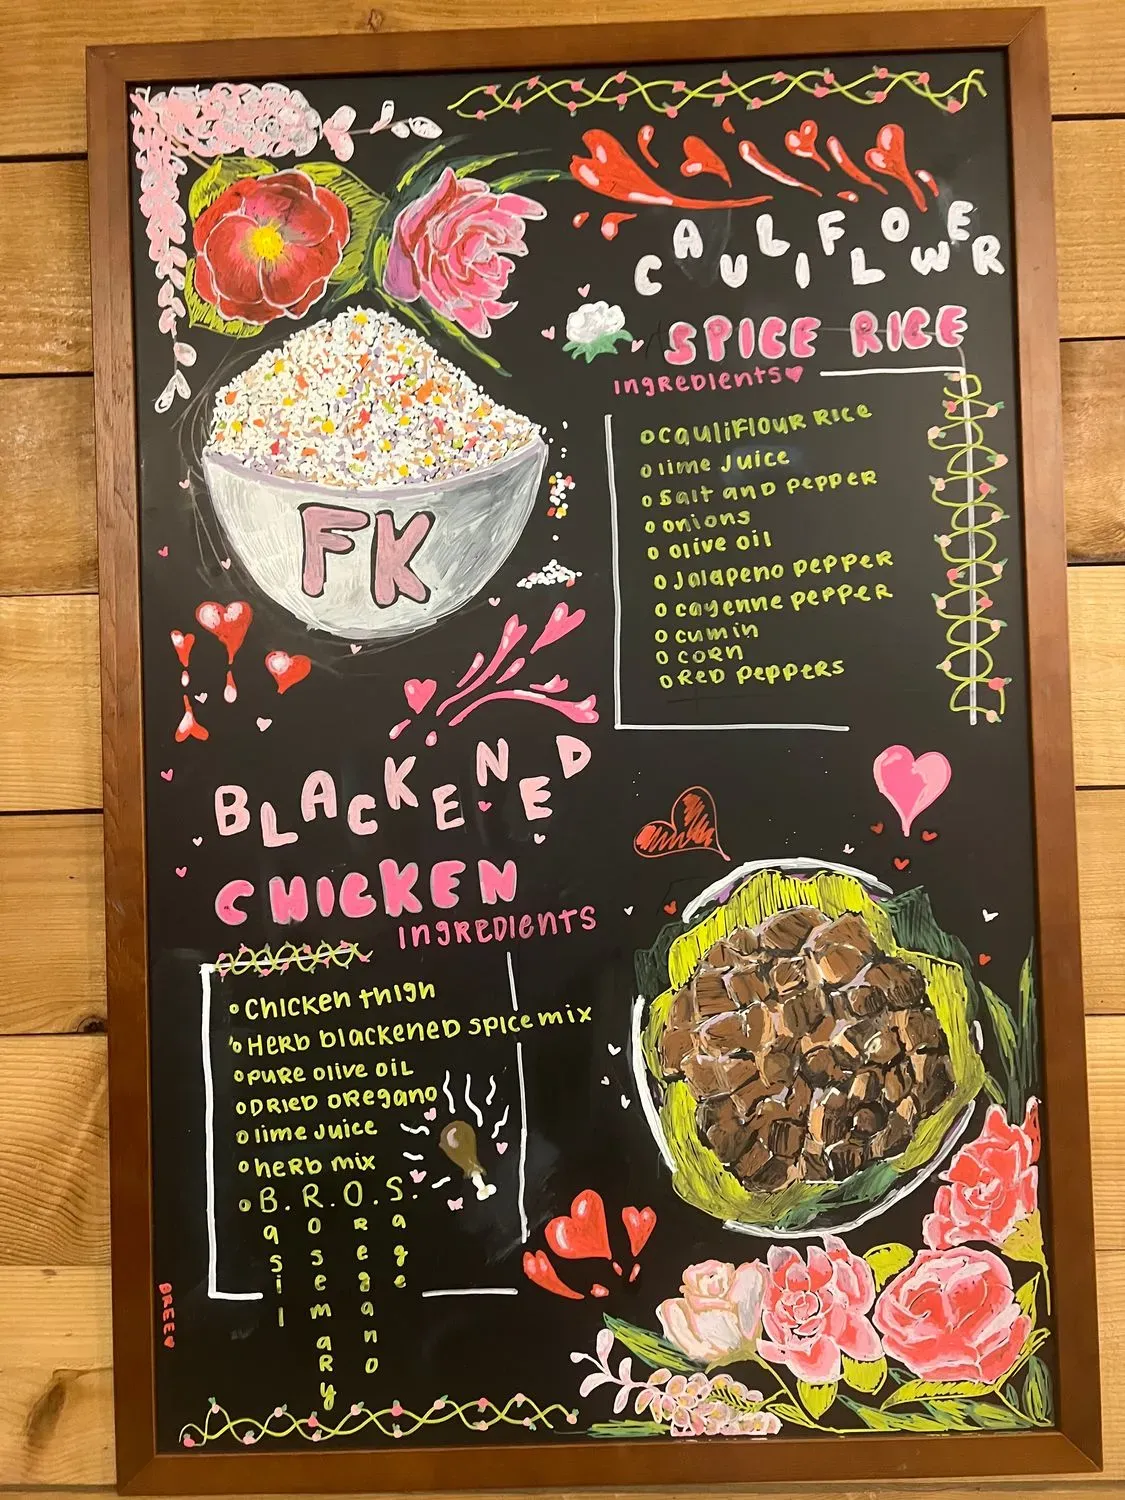 CAULIFLOWER
SPICE RICE
INGREDIENTS
CAULIFLOUR RICE
lime Juice
Salt AND PePPeR
onions
olive oil
Jalapeno PePPeR
cayenne PePPeR
cumin
CORN
RED PePPeRS
FK
BLACKENED
CHICKEN
INGREDIENTS
Chicken thigh
HeRb blackeneD spice mix
PURE olive OiL
DRIED OReGano
lime Juice
heRb mix
B.R.O.S.
Basil
RosemaRy
ORegano
Sage
BREE